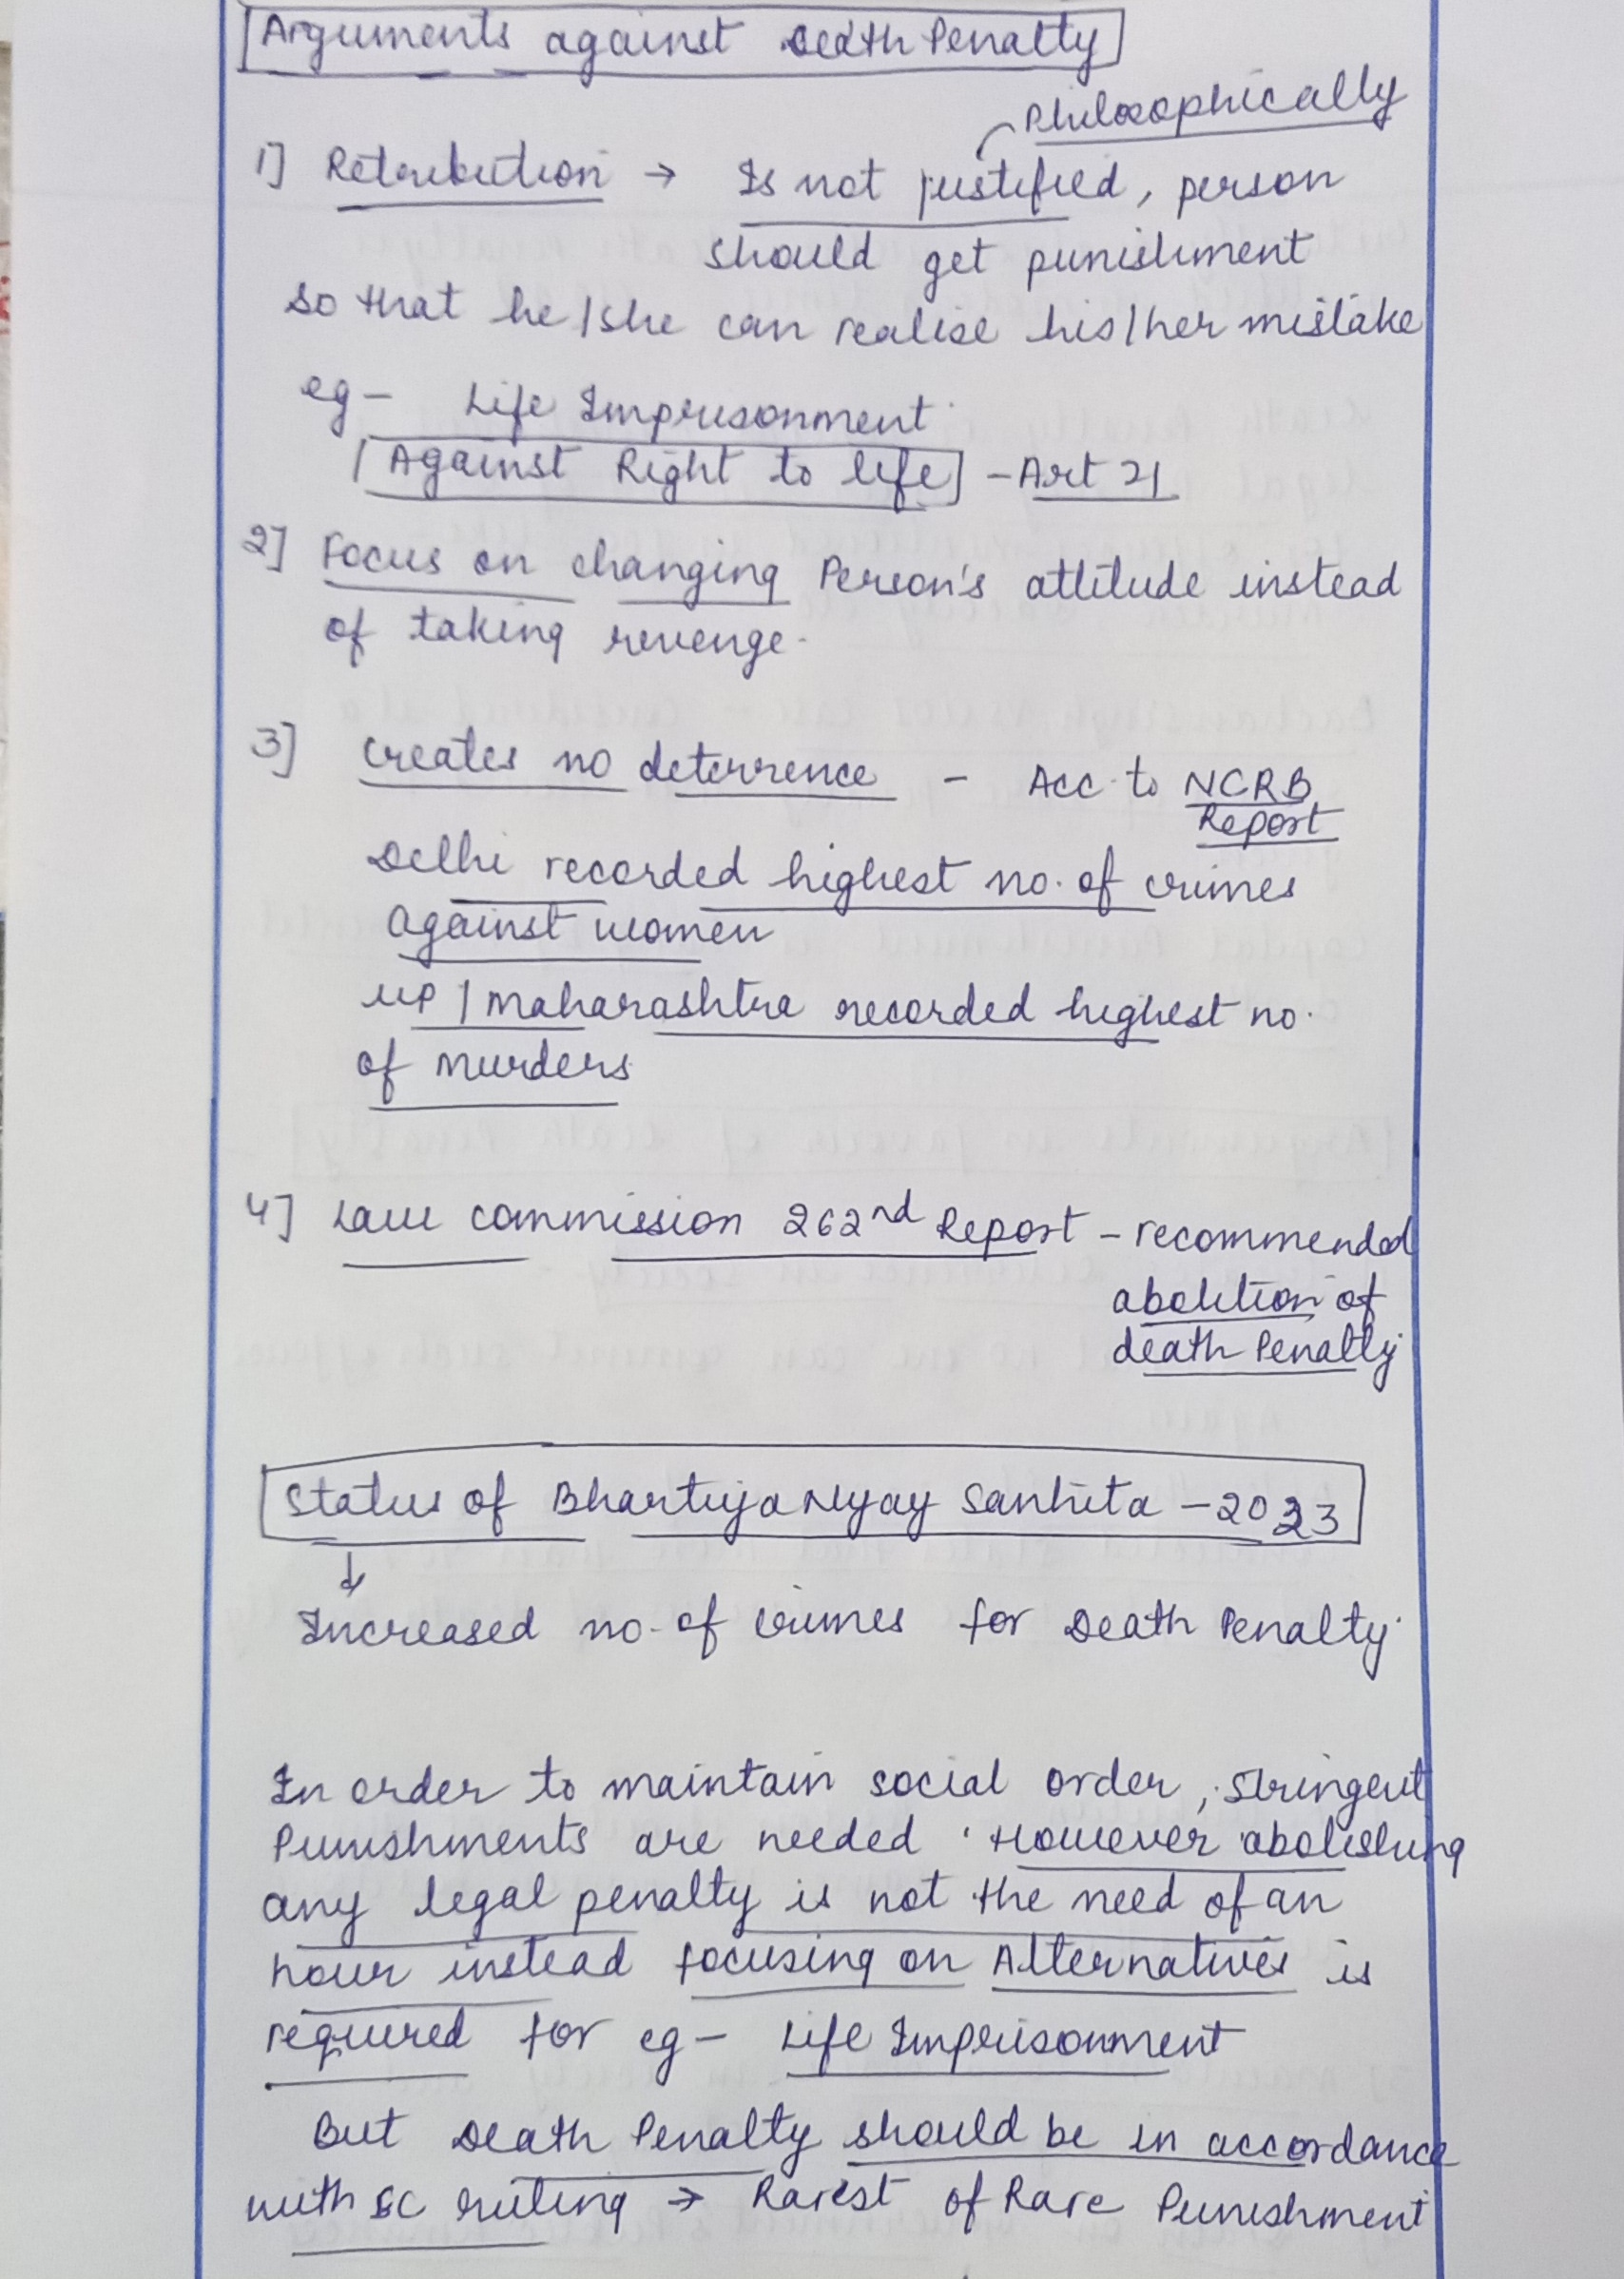 Arguments against Death Penalty
Philosophically
1] Retribution → Is not justified, person
should get punishment
so that he/she can realise his/her mistake
eg - Life Imprisonment
Against Right to life - Art 21
2] Focus on changing Person's attitude instead
of taking revenge.
3] creates no deterrence - Acc to NCRB
Report
Delhi recorded highest no. of crimes
against women
UP / Maharashtra recorded highest no.
of murders
4] Law commission 262nd Report - recommended
abolition of
death Penalty
Status of Bhartiya Nyay Sanhita - 2023
↓
Increased no. of crimes for Death Penalty.
In order to maintain social order, stringent
Punishments are needed. However abolishing
any legal penalty is not the need of an
hour instead focusing on Alternatives is
required for eg - Life Imprisonment
But Death Penalty should be in accordance
with SC ruling → Rarest of Rare Punishment